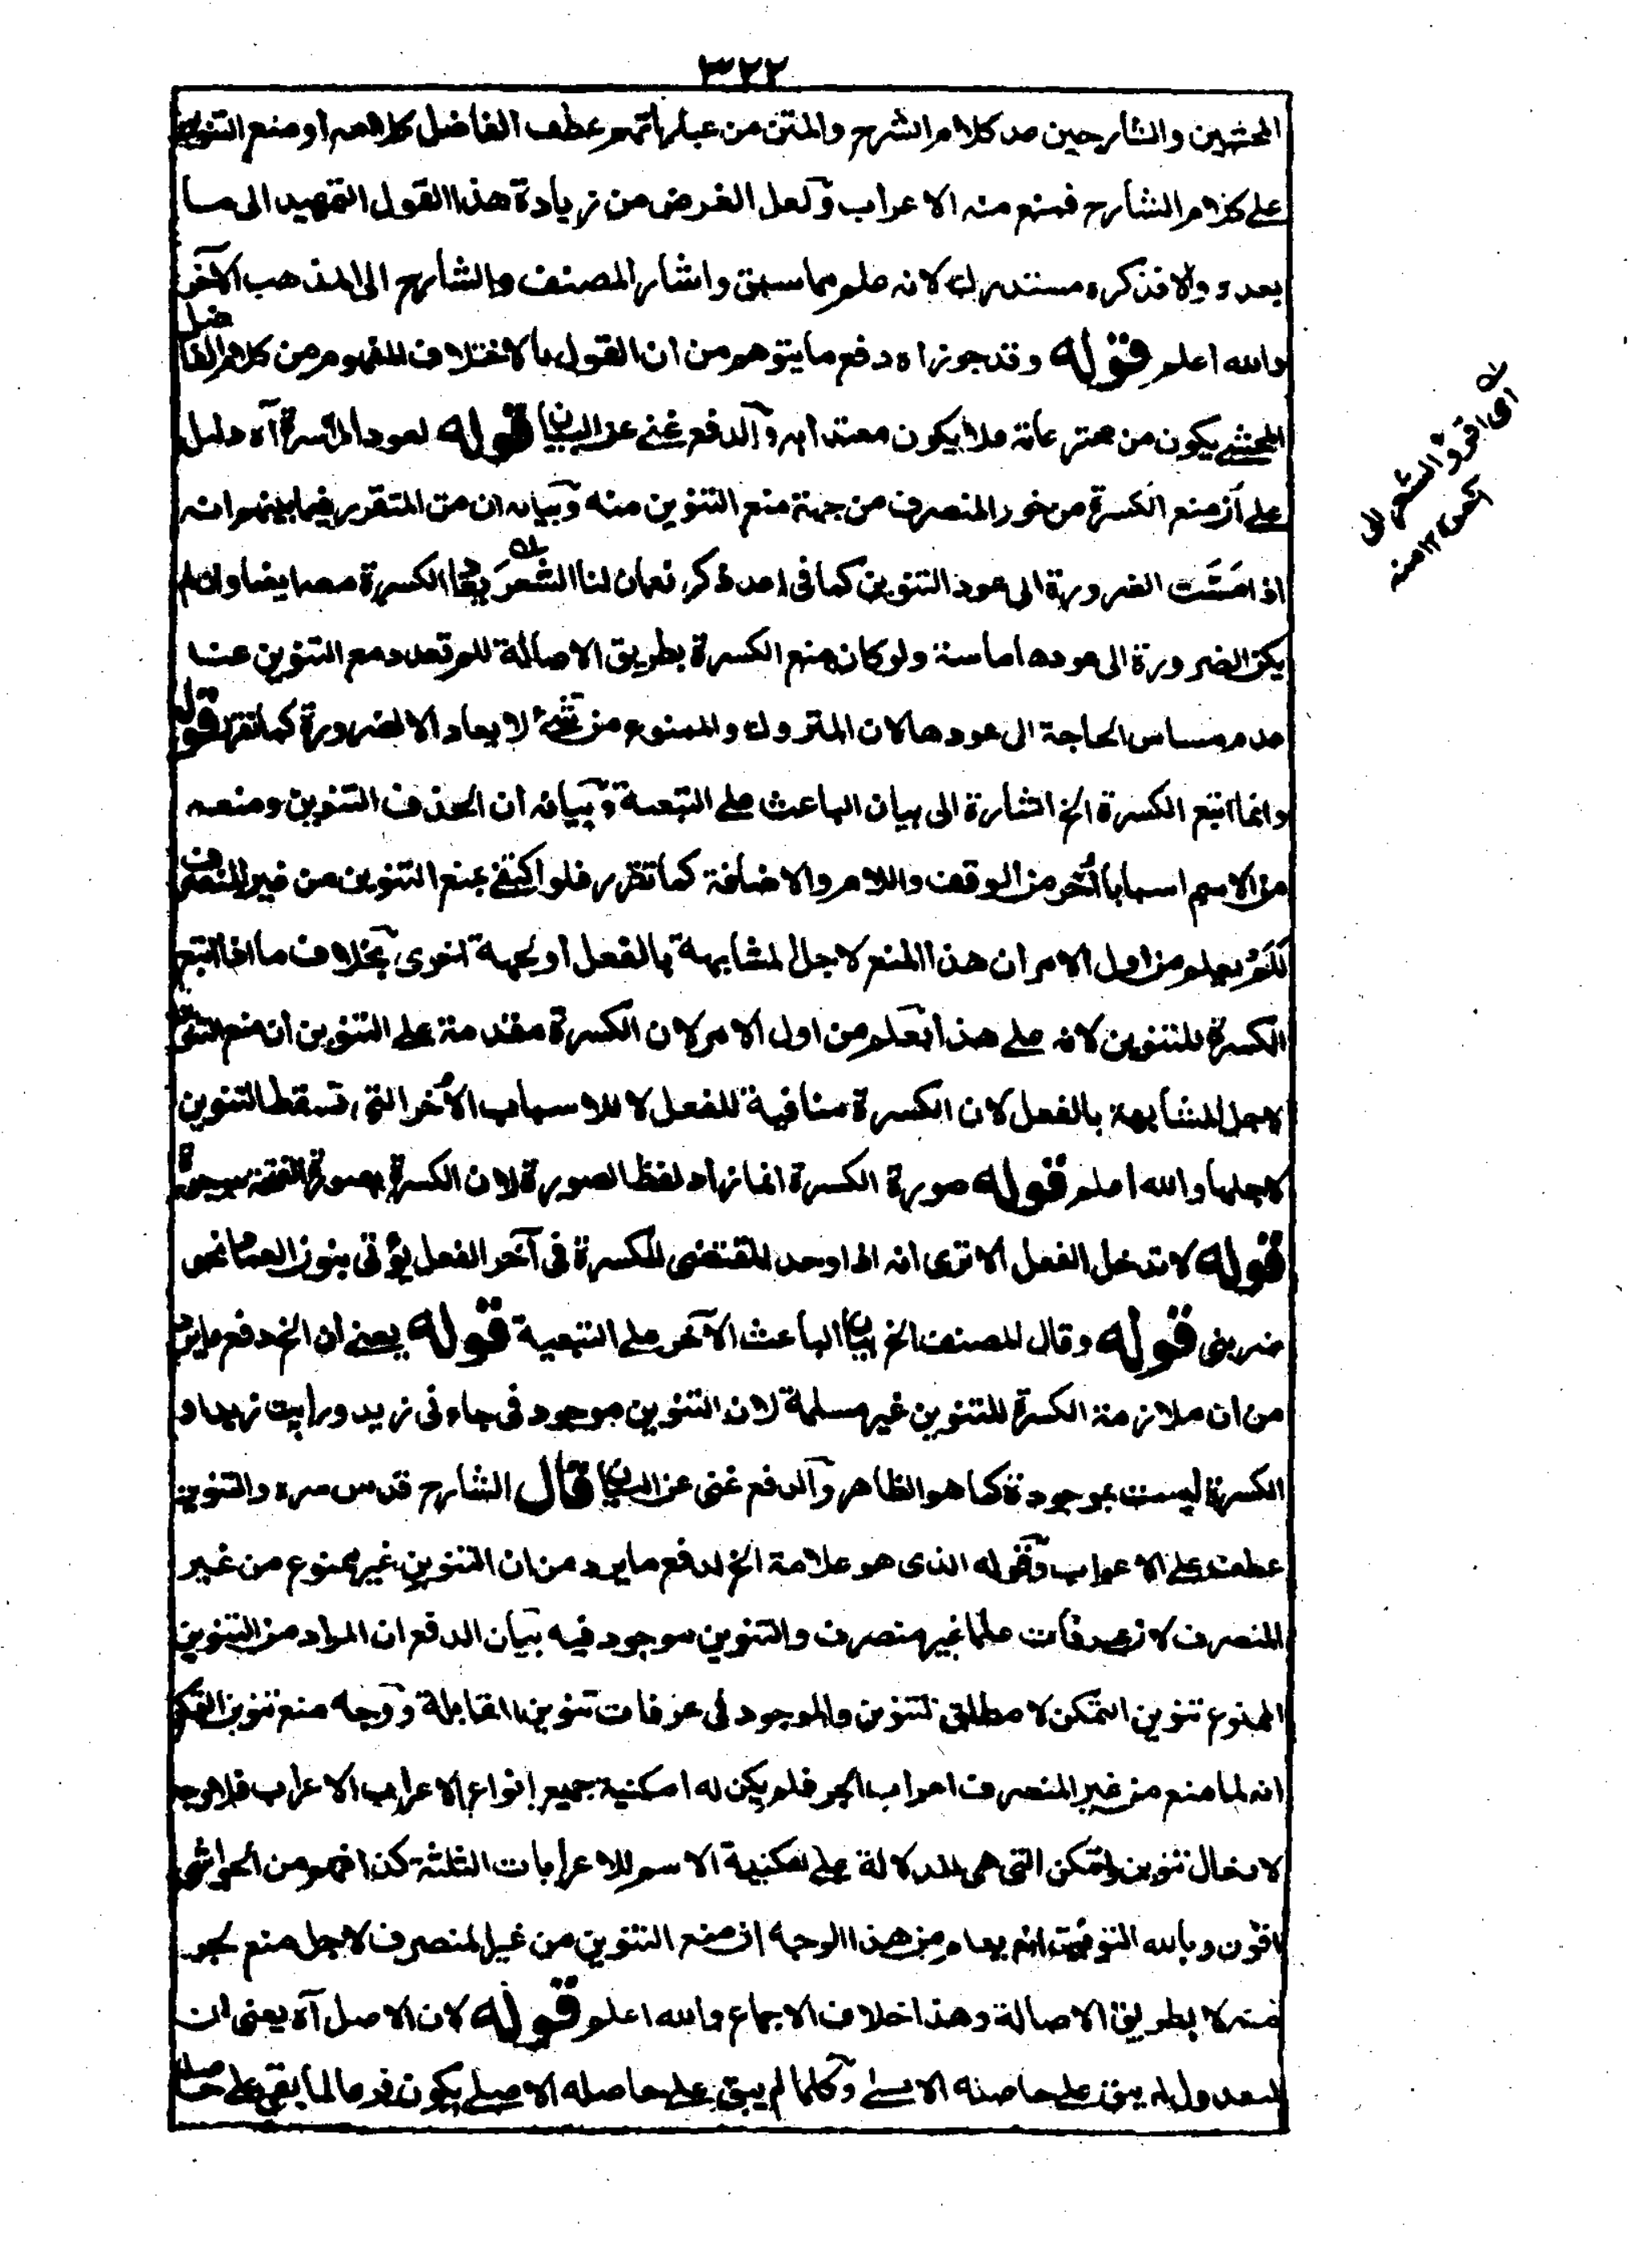 ٣٢٢
المحشيين والشارحين مد كلام الشرح والمتن من عباراتهم عطف الفاضل كلامه او منع التنوين
على كلام الشارح فمنع منه الاعراب ولعل الغرض من زيادة هذا القول التمهيد الى ما
بعده والا فذكره مستدرك لانه علم مما سبق واشار المصنف والشارح الى المذهب الآخر
والله اعلم قوله وقد جوز اه دفع ما يتوهم من ان القول بالاختلاف المفهوم من كلام الفاضل
المحشي يكون من مخترعاته فلا يكون معتدا به والدفع غني عن البيان قوله لعود الكسرة آه دليل
على ان منع الكسرة من غير المنصرف من جهة منع التنوين منه وبيانه ان من المتقرر فيما بينهم انه
اذا مست الضرورة الى عود التنوين كما في اعد ذكر نعمان لنا الشعر يعاد الكسرة معه ايضا وان لم
يكن الضرورة الى عودها ماسة ولو كان منع الكسرة بطريق الاصالة لم تعد مع التنوين عند
عدم مساس الحاجة الى عودها لان المتروك والممنوع من شئ لا يعاد الا لضرورة كما تقرر قوله
وانما اتبع الكسرة الخ اشارة الى بيان الباعث على التبعية وبيانه ان لحذف التنوين ومنعه
من الاسم اسبابا اُخر من الوقف واللام والاضافة كما تقرر فلو اكتفى بمنع التنوين من غير المنصرف
لَمْ يعلم من اول الامر ان هذا المنع لاجل المشابهة بالفعل او لجهة اخرى بخلاف ما اذا اتبع
الكسرة للتنوين لانه على هذا يعلم من اول الامر لان الكسرة مقدمة على التنوين ان منع التنوين
لاجل المشابهة بالفعل لان الكسرة منافية للفعل لا للاسباب الاُخر التي تسقط التنوين
لاجلها والله اعلم قوله صورة الكسرة انما زاد لفظ الصورة لان الكسرة بصورة الفتحة موجودة
قوله لا تدخل الفعل الا ترى انه اذا وجد المقتضى للكسرة في آخر الفعل يؤتى بنون العماد نحو
ضربني قوله وقال المصنف الخ بيان الباعث الآخر على التبعية قوله يعني ان الخ دفع ما يرد
من ان ملازمة الكسرة للتنوين غير مسلمة لان التنوين موجود في جاءني زيد ورايت زيدا و
الكسرة ليست بموجودة كما هو الظاهر والدفع غنى عن البيان قال الشارح قدس سره والتنوين
عطف على الاعراب وقوله الذى هو علامة الخ لدفع ما يرد من ان التنوين غير ممنوع من غير
المنصرف لان عرفات علما غير منصرف والتنوين موجود فيه بيان الدفع ان المراد من التنوين
الممنوع تنوين التمكن لا مطلق التنوين والموجود في عرفات تنوين المقابلة ووجه منع تنوين التمكن
انه لما منع من غير المنصرف اعراب الجر فلم يكن له امكنية جميع انواع الاعراب الاعراب فلا وجه
لادخال تنوين التمكن التى هى للدلالة على امكنية الاسم للاعرابات الثلثة كذا فهم من الحواشي
اقول وبالله التوفيق انه يعلم من هذا الوجه ان منع التنوين من غير المنصرف لاجل منع الجر
منه لا بطريق الاصالة وهذا خلاف الاجماع والله اعلم قوله لان الاصل آه يعنى ان
المعدول لم يبق على حاصله الاصلي وكلما لم يبق على حاصله الاصلي يكون فرعا لما بقي على حاصله
اى اقرؤ الشعر الى
آخره ١٢ منه